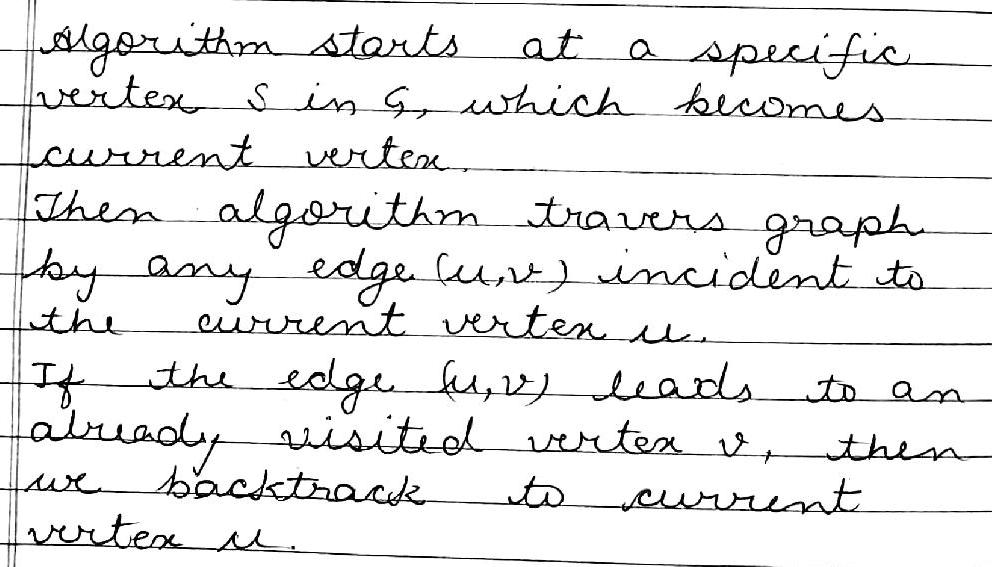 Algorithm starts at a specific
vertex S in G, which becomes
current vertex.
Then algorithm travers graph
by any edge (u,v) incident to
the current vertex u.
If the edge (u,v) leads to an
already visited vertex v, then
we backtrack to current
vertex u.